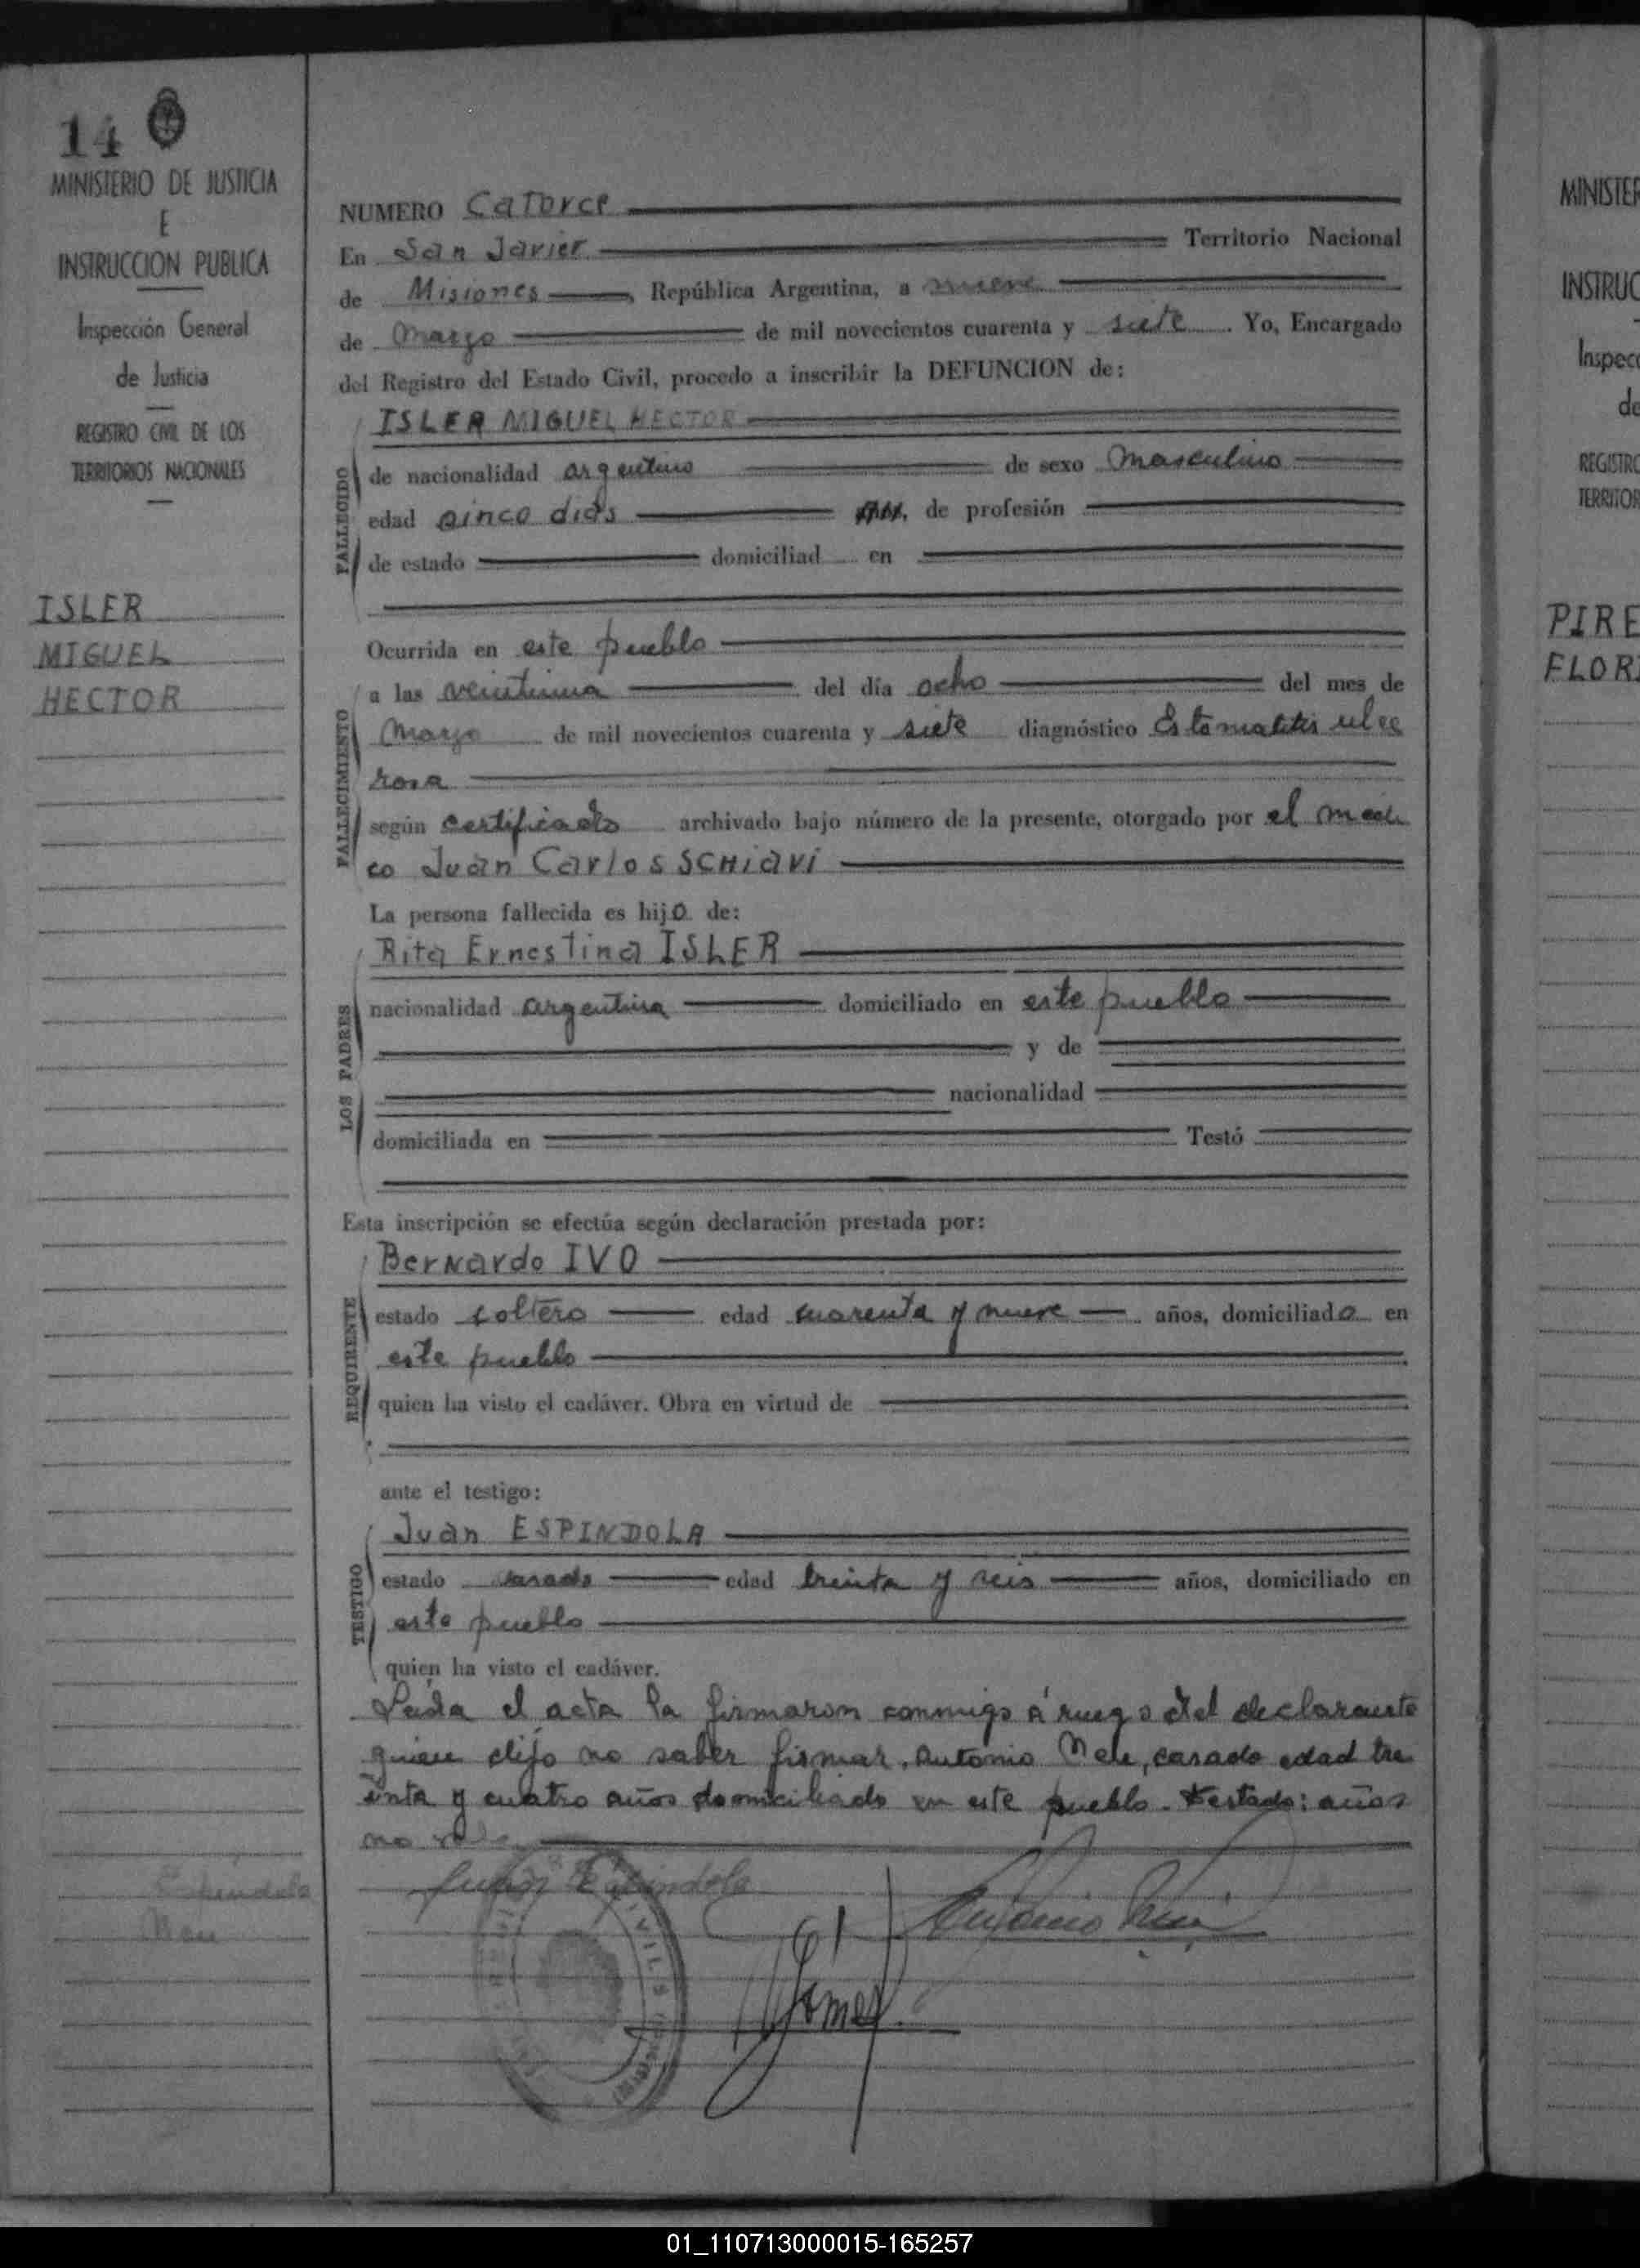 14
MINISTERIO DE JUSTICIA
E
INSTRUCCION PUBLICA
Inspección General
de Justicia
REGISTRO CIVIL DE LOS
TERRITORIOS NACIONALES
ISLER
MIGUEL
HECTOR
Espindola
NUMERO Catorce
En San Javier Territorio Nacional
de Misiones, República Argentina, a nueve
de Marzo de mil novecientos cuarenta y siete. Yo, Encargado
del Registro del Estado Civil, procedo a inscribir la DEFUNCION de:
FALLECIDO
ISLER MIGUEL HECTOR
de nacionalidad argentino de sexo Masculino
edad cinco dias , de profesión
de estado domiciliad en
FALLECIMIENTO
Ocurrida en este pueblo
a las veintiuna del día ocho del mes de
Marzo de mil novecientos cuarenta y siete diagnóstico Estomatitis ulce
rosa
según certificado archivado bajo número de la presente, otorgado por el médi
co Juan Carlos SCHiavi
La persona fallecida es hijo de:
LOS PADRES
Rita Ernestina ISLER
nacionalidad argentina domiciliado en este pueblo
y de
nacionalidad
domiciliada en Testó
Esta inscripción se efectúa según declaración prestada por:
REQUIRENTE
Bernardo IVO
estado soltero edad cuarenta y nueve años, domiciliado en
este pueblo
quien ha visto el cadáver. Obra en virtud de
ante el testigo:
TESTIGO
Juan ESPINDOLA
estado casado edad treinta y seis años, domiciliado en
este pueblo
quien ha visto el cadáver.
Leida el acta la firmaron conmigo á ruego del declarante
quien dijo no saber firmar, Antonio casado edad tre
inta y cuatro años domiciliado en este pueblo. Testado: años
no vale
Juan Espindola
Antonio
Gómez
MINISTER
INSTRUC
Inspecc
de
REGISTRO
TERRITOR
PIRE
FLORI
01_110713000015-165257